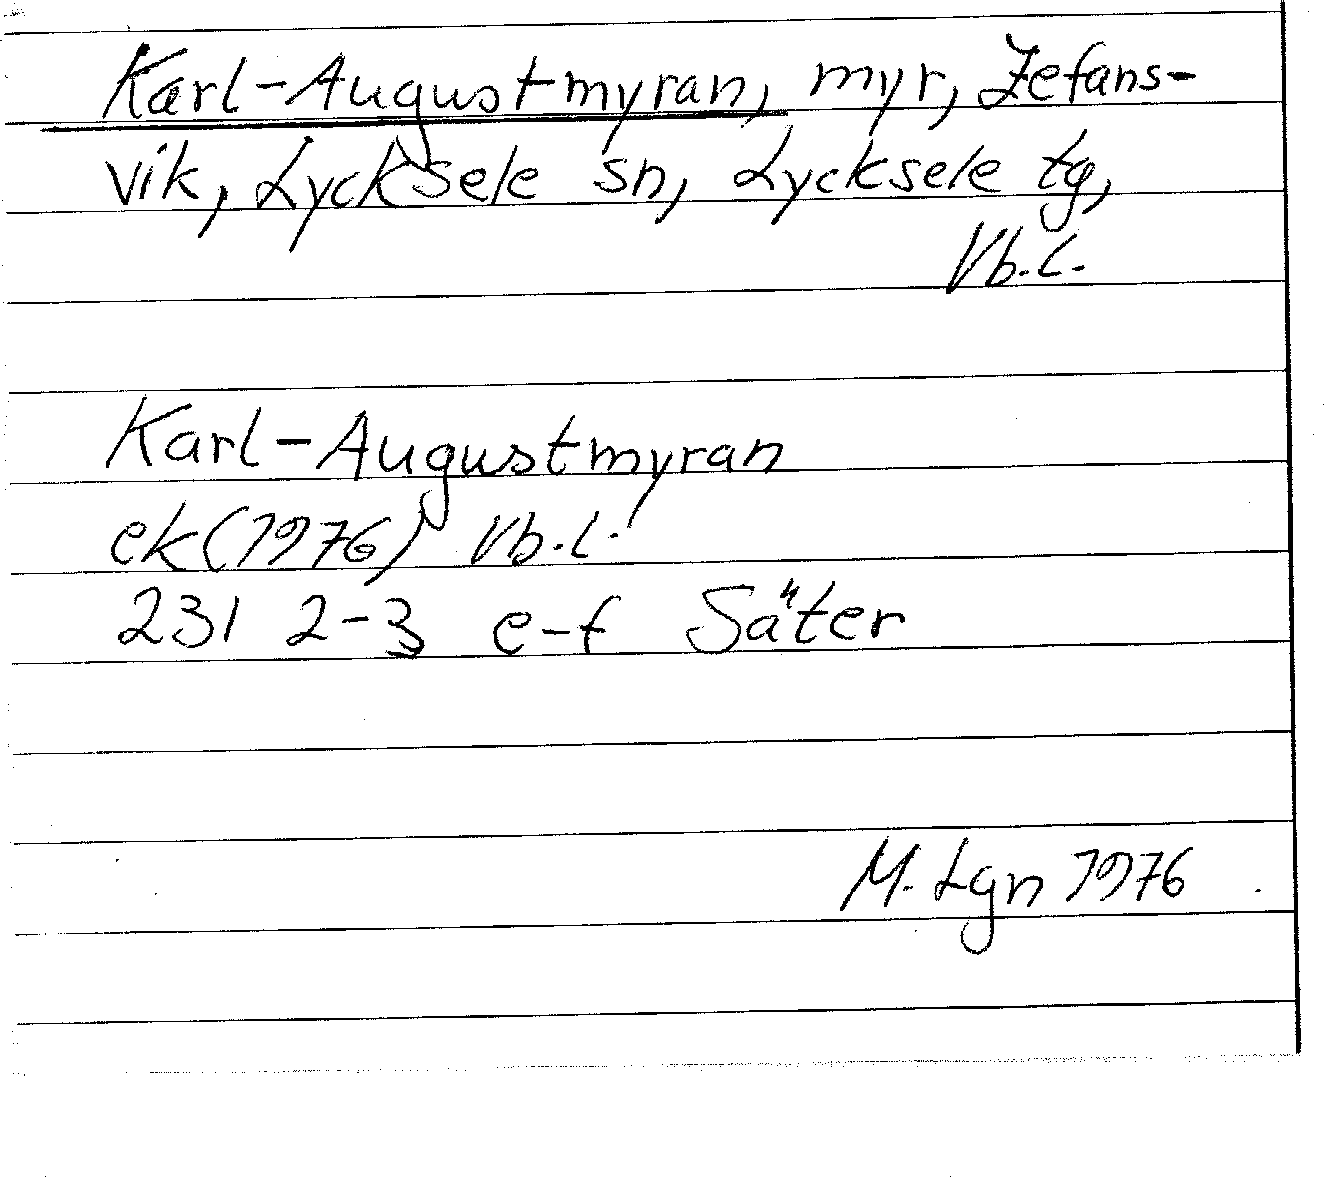 Karl-Augustmyran, myr, Zefans-
vik, Lycksele sn, Lycksele tg,
Vb.l.
Karl-Augustmyran
ek (1976) Vb.l.
231 2-3 e-f Säter
M. Lgn 1976